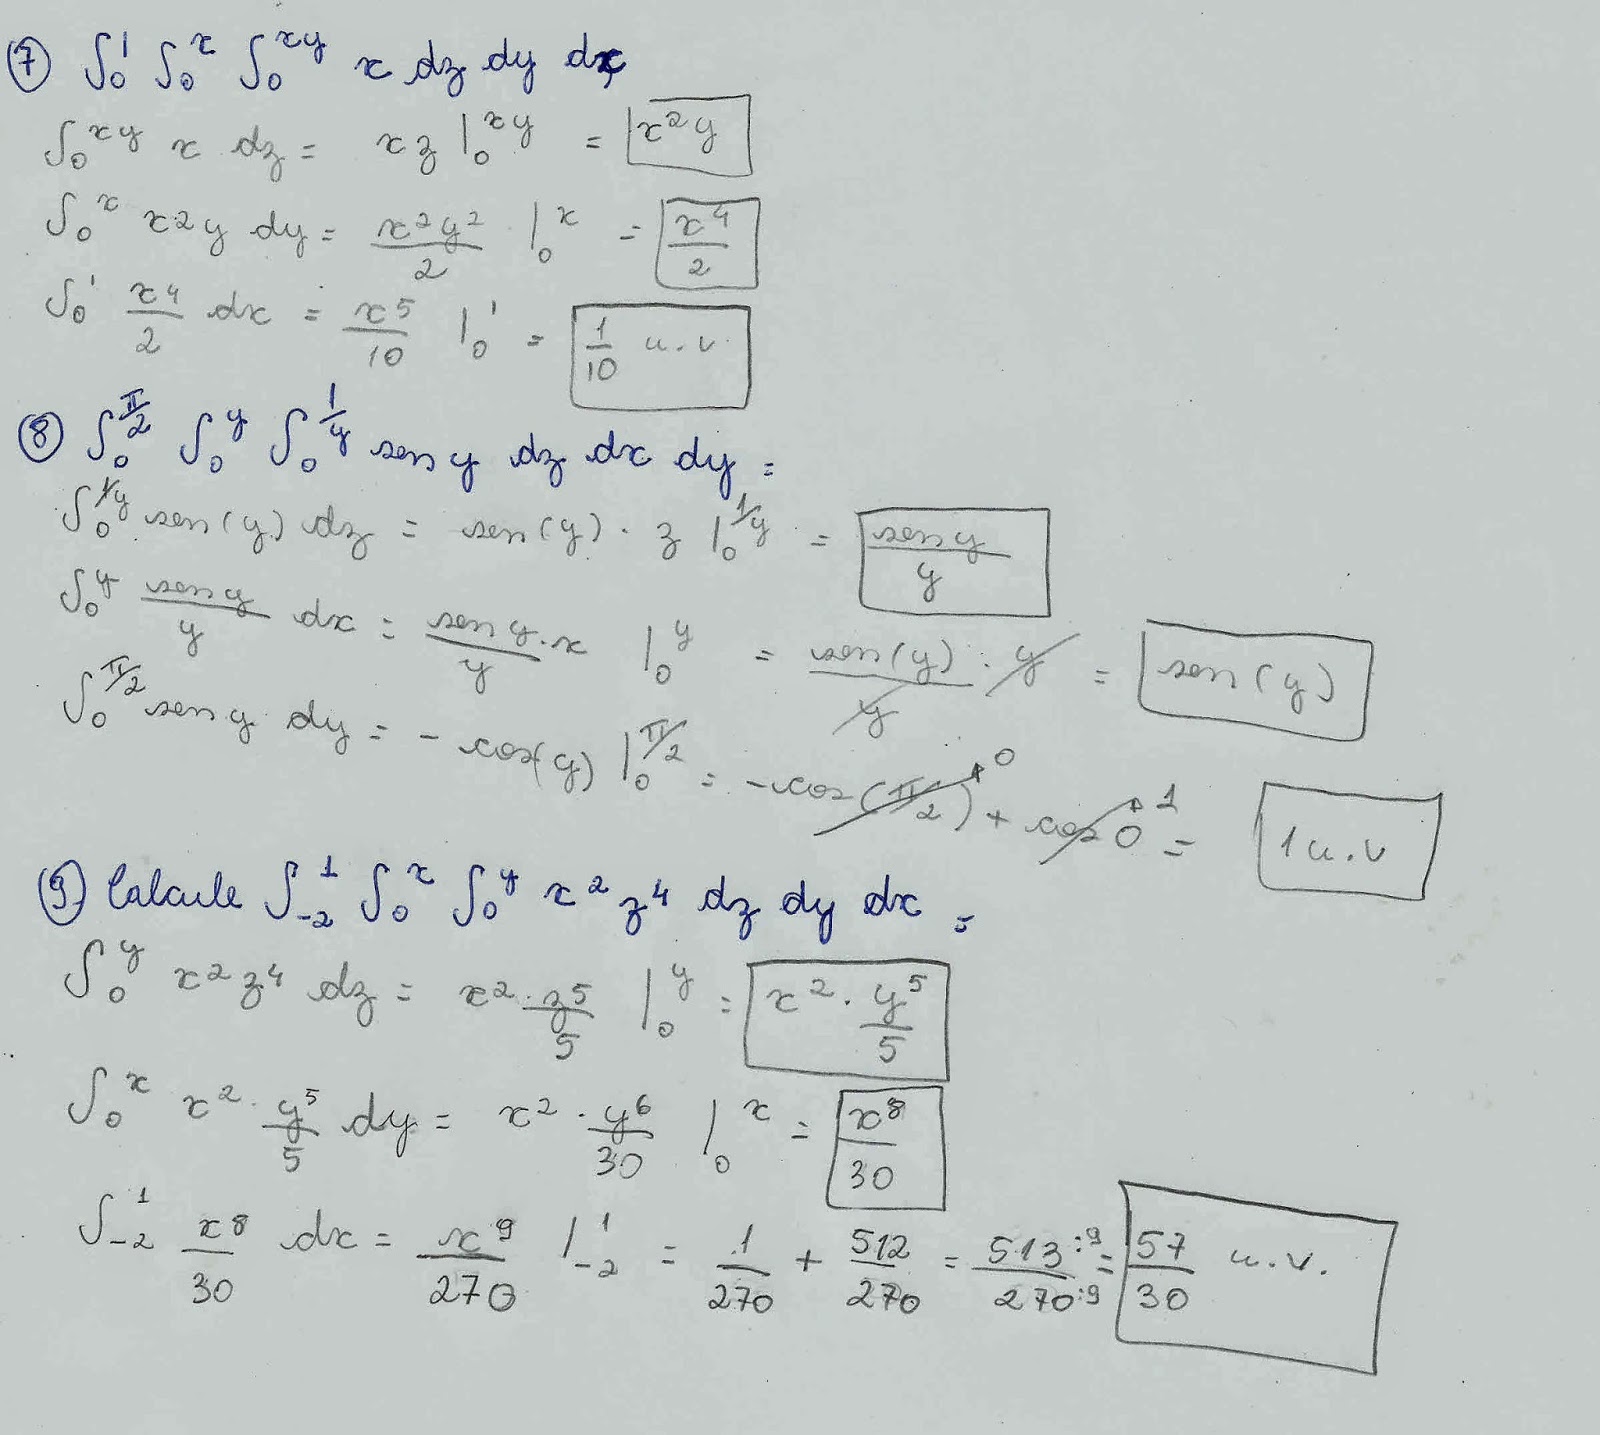 ⑦ ∫₀¹ ∫₀ˣ ∫₀ˣʸ x dz dy dx
∫₀ˣʸ x dz = xz |₀ˣʸ = x²y
∫₀ˣ x2y dy = x²y²/2 |₀ˣ = x⁴/2
∫₀¹ x4/2 dx = x5/10 |₀¹ = 1/10 u.v.
⑧ ∫₀^(π/2) ∫₀^y ∫₀^(1/y) sen y dz dx dy =
∫₀^(1/y) sen(y) dz = sen(y) · z |₀^(1/y) = sen y/y
∫₀^y sen y/y dx = sen y/y · x |₀^y = sen(y)/y · y = sen(y)
∫₀^(π/2) sen y dy = - cos(y) |₀^(π/2) = - cos(π/2) 0 + cos 0 1 = 1 u.v
⑨ Calcule ∫₋₂¹ ∫₀ˣ ∫₀ʸ x² z⁴ dz dy dx =
∫₀^y x² z⁴ dz = x² · z⁵/5 |₀^y = x² · y⁵/5
∫₀ˣ x² · y⁵/5 dy = x² · y⁶/30 |₀ˣ = x⁸/30
∫₋₂¹ x⁸/30 dx = x⁹/270 |₋₂¹ = 1/270 + 512/270 = 513:9/270:9 = 57/30 u.v.